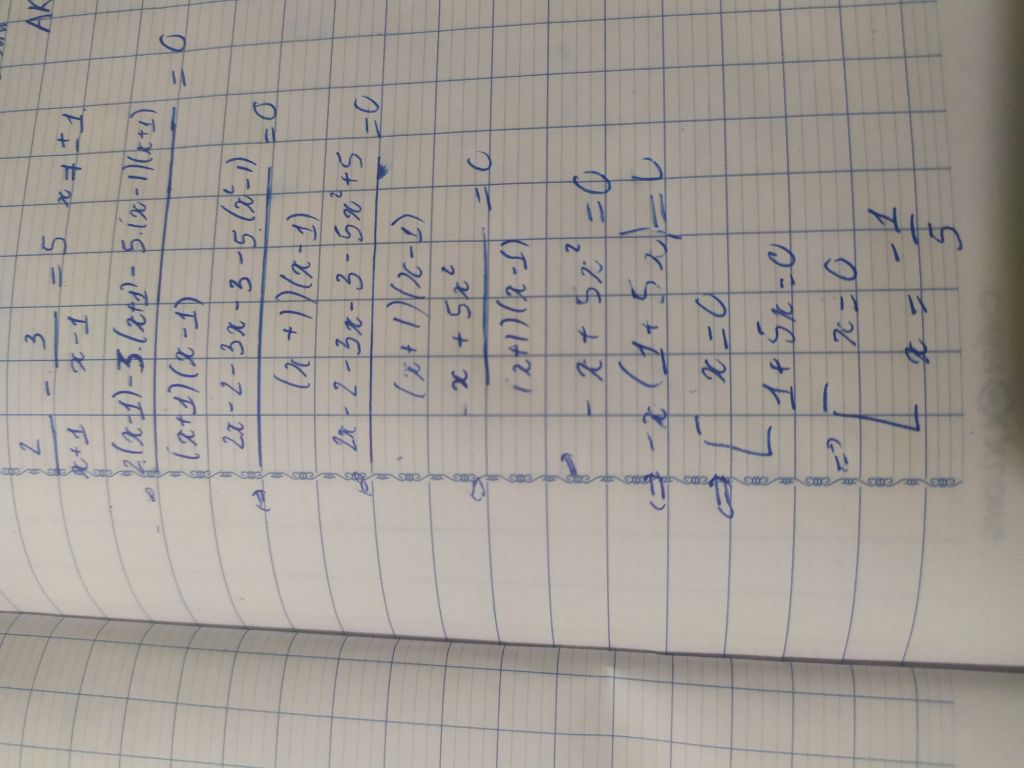 2/(x+1) - 3/(x-1) = 5 x ≠ ±1
(2.(x-1) - 3.(x+1) - 5.(x-1)(x+1))/((x+1)(x-1)) = 0
⇔ (2x-2-3x-3-5(x²-1))/((x+1)(x-1)) = 0
(2x-2-3x-3-5x²+5)/((x+1)(x-1)) = 0
⇔ (-x+5x²)/((x+1)(x-1)) = 0
-x+5x² = 0
⇔ -x(1+5x) = 0
⇔ [ x=0
1+5x=0
⇒ [ x=0
x = -1/5